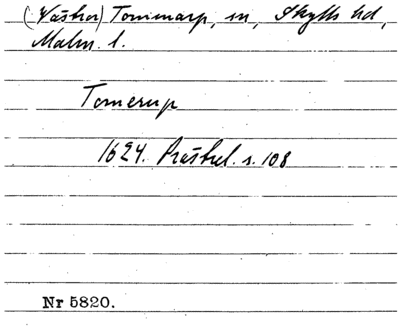 (Västra) Tommarp, sn, Skytts hd,
Malm. l.
Tomerup
1624. Prästrel. s. 108
Nr 5820.